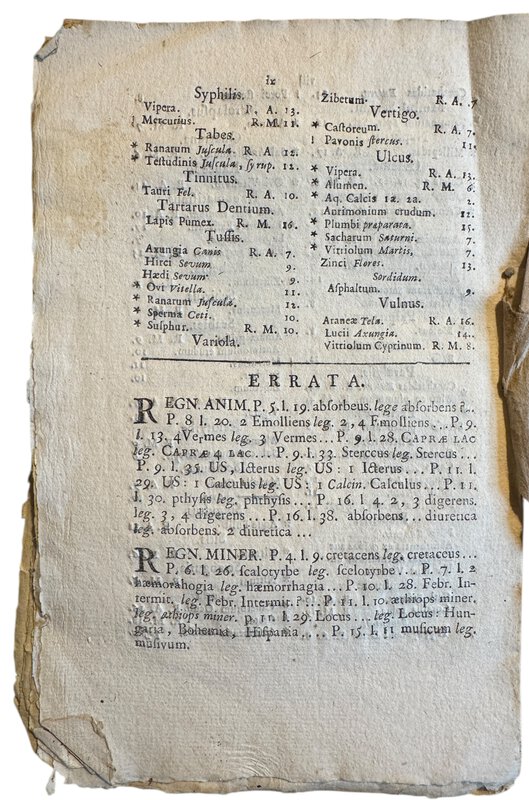 ix
Syphilis.
Vipera. R. A. 13.
! Mercurius. R. M. 11.
Tabes.
* Ranarum Juſcula. R. A. 12.
* Teſtudinis Juſcula, ſyrup. 12.
Tinnitus.
Tauri Fel. R. A. 10.
Tartarus Dentium.
Lapis Pumex. R. M. 16.
Tuſſis.
Axungia Canis R. A. 7.
Hirci Sevum 9.
Hædi Sevum 9.
* Ovi Vitella. 11.
* Ranarum Juſcula. 12.
* Sperma Ceti. 10.
* Sulphur. R. M. 10.
Variola.
Zibetum. R. A. 7
Vertigo.
* Caſtoreum. R. A. 7.
! Pavonis ſtercus. 11.
Ulcus.
* Vipera. R. A. 13.
* Alumen. R. M. 6.
* Aq. Calcis 1a. 2a. 2.
Antimonium crudum. 12.
* Plumbi præparata. 15.
* Sacharum Saturni. 7.
* Vitriolum Martis. 7.
Zinci Flores. 13.
Sordidum.
Aſphaltum. 9.
Vulnus.
Araneæ Tela. R. A. 16.
Lucii Axungia. 14.
Vitriolum Cyprinum. R. M. 8.
ERRATA.
REGN. ANIM. P. 5. l. 19. abſorbeus. lege abſorbens ?...
P. 8 l. 20. 2 Emolliens leg. 2, 4 Emolliens... P. 9.
l. 13. 4 Vermes leg. 3 Vermes... P. 9 l. 28. CAPRÆ LAC
leg. CAPRÆ 4 LAC... P. 9. l. 33. Sterccus leg. Stercus...
P. 9. l. 35. US, Icterus leg. US : 1 Icterus... P. 11. l.
29. US : 1 Calculus leg. US : 1 Calcin. Calculus... P. 11
l. 30. pthyſis leg. phthyſis... P. 16. l 4. 2, 3 digerens.
leg. 3, 4 digerens... P. 16. l. 38. abſorbens... diuretica
leg. abſorbens. 2 diuretica...
REGN. MINER. P. 4. l. 9. cretacens leg. cretaceus...
P. 6. l. 26. ſcalotyrbe leg. ſcelotyrbe... P. 7. l. 2
hæmorahogia leg. hæmorrhagia... P. 10. l. 28. Febr. In-
termit. leg. Febr. Intermit. ?... P. 11. l. 10. æthiops miner.
leg. æthiops miner. p. 11. l. 29. Locus... leg. Locus : Hun-
garia, Bohemia, Hiſpania... P. 15. l. 11 muſicum leg.
muſivum.